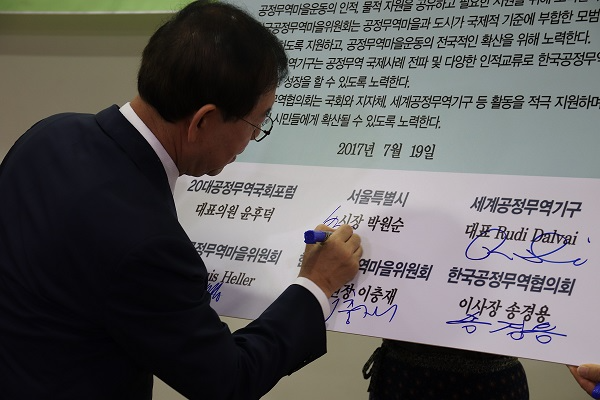 공정무역마을운동의 인적, 물적 자원을 공유하고 필요한 지원을
공정무역마을위원회는 공정무역마을과 도시가 국제적 기준에 부합한 모범
하도록 지원하고, 공정무역마을운동의 전국적인 확산을 위해 노력한다.
역기구는 공정무역 국제사례 전파 및 다양한 인적교류로 한국공정무역
성장을 할 수 있도록 노력한다.
역협의회는 국회와 지자체, 세계공정무역기구 등 활동을 적극 지원하며
시민들에게 확산될 수 있도록 노력한다.
2017년 7월 19일
20대공정무역국회포럼
대표의원 윤후덕
서울특별시
시장 박원순
세계공정무역기구
대표 Rudi Dalvai
공정무역마을위원회
Heller
역마을위원회
장 이충재
한국공정무역협의회
이사장 송경용